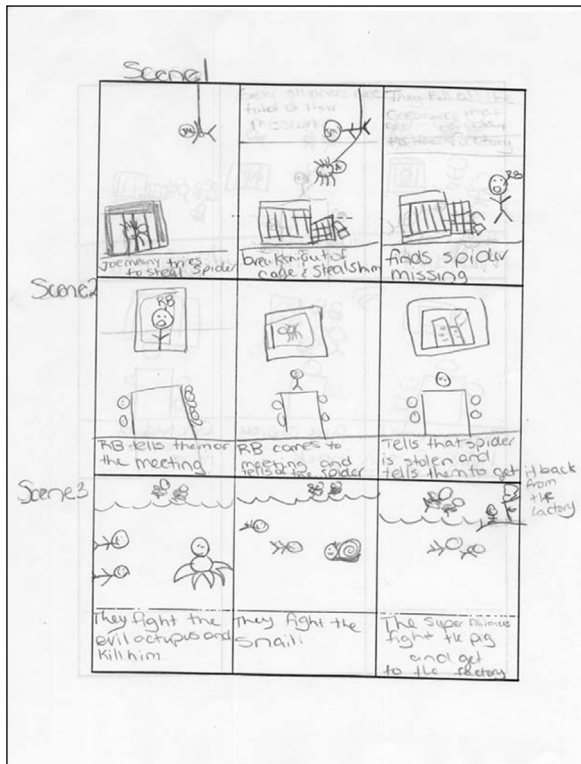 Scene 1
Joe meany tries
to steal spider
break open out of
cage & steals him
RB
finds spider
missing
Scene 2
RB
RB tells them of
the meeting
RB comes to
meeting and
tells of the spider
Tells that spider
is stolen and
tells them to get it back
from
the
factory
Scene 3
They fight the
evil octupus and
kill him
They fight the
snail!
The Super
fight the pig
and get
to the factory